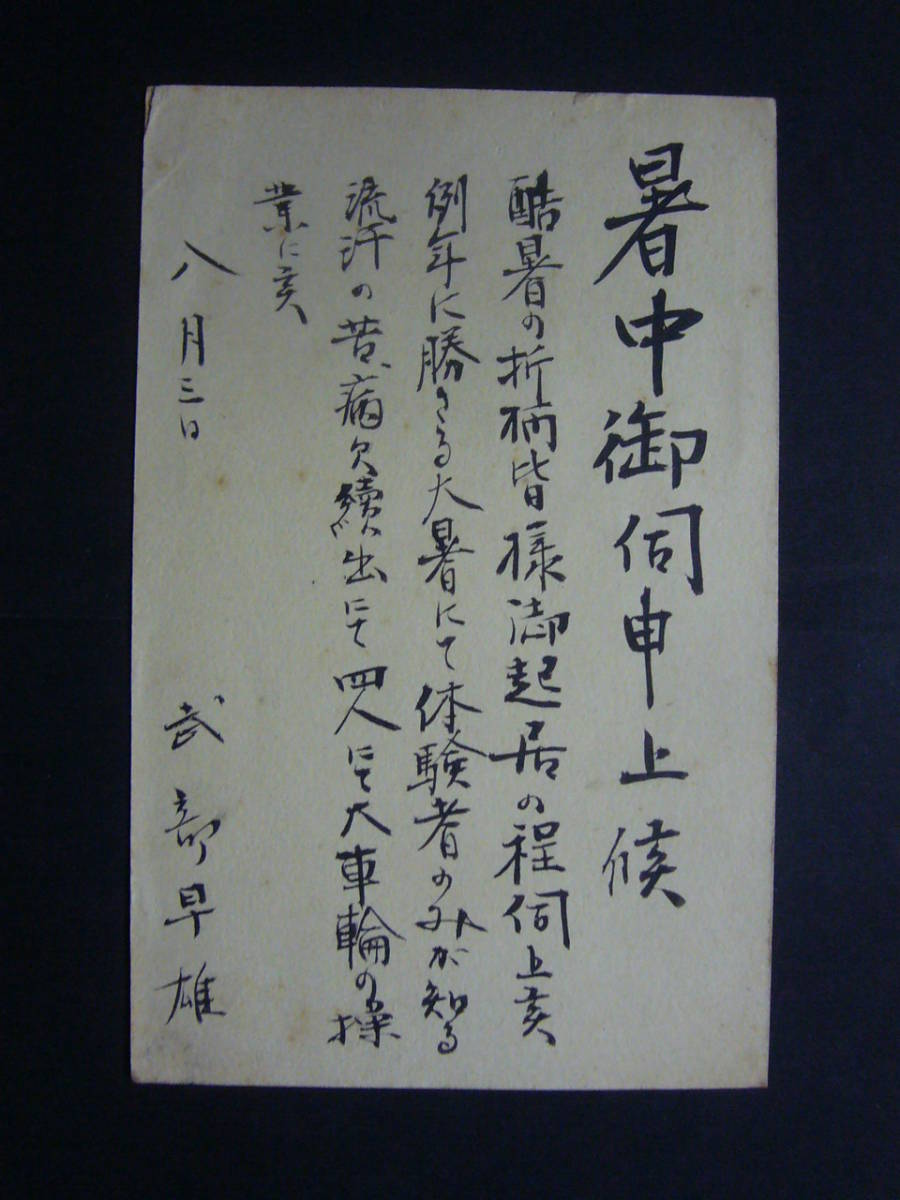 暑中御伺申上候
酷暑の折柄皆様御起居の程伺上候
例年に勝さる大暑にて体験者のみが知る
流汗の苦、病欠続出にて四人にて大車輪の操
業に候
八月三日
武部早雄